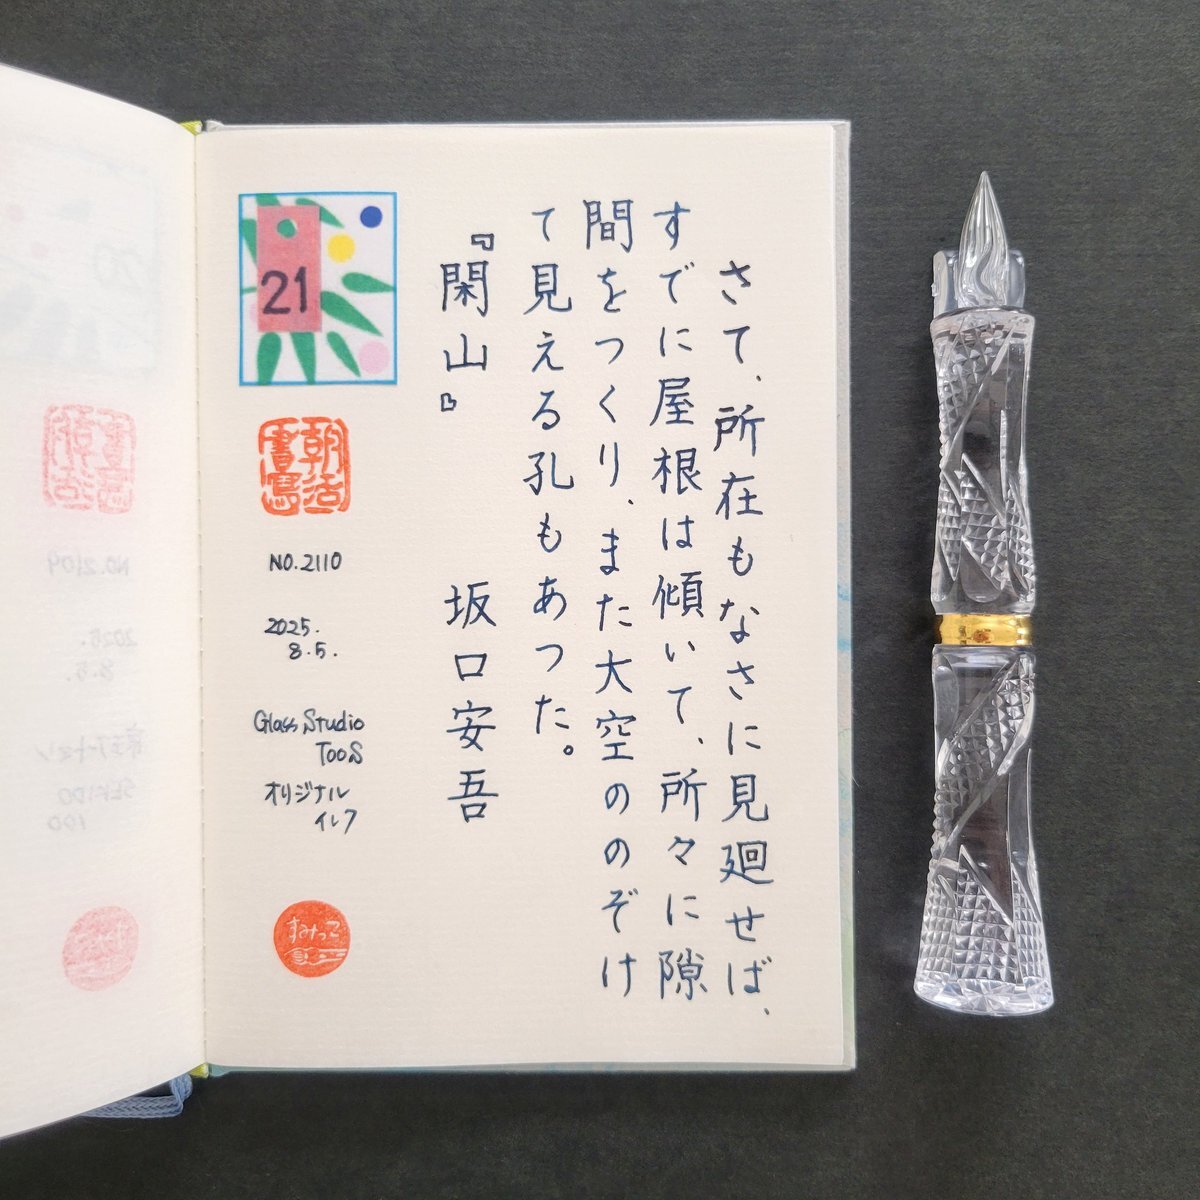 さて、所在もなさに見廻せば、
すでに屋根は傾いて、所々に隙
間をつくり、また大空ののぞけ
て見える孔もあった。
『閑山』 坂口安吾
21
朝活書写
NO.2110
2025.
8.5.
Glass Studio
TooS
オリジナル
イレフ
すみっこ